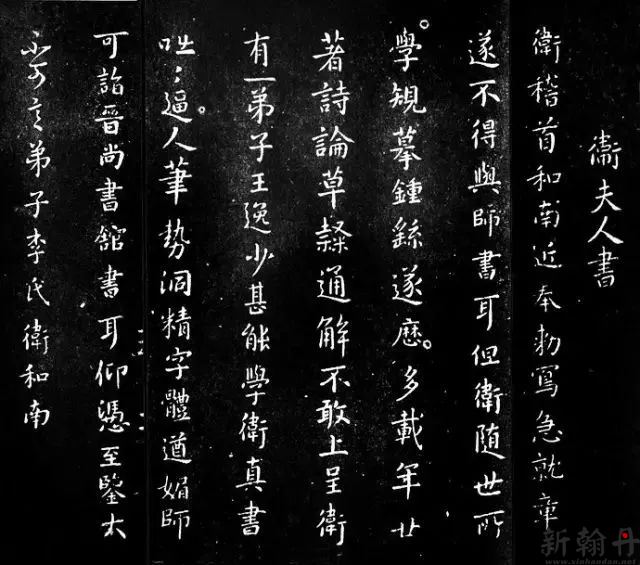 衛夫人書
衛稽首和南近奉勅寫急就章
遂不得與師書耳但衛隨世所
學規摹鍾繇遂歷多載年廿
著詩論草隸通解不敢上呈衛
有一弟子王逸少甚能學衛真書
咄咄逼人筆勢洞精字體遒媚師
可詣晉尚書館書耳仰憑至鑒大
不可言弟子李氏衛和南
新翰丹
www.xinhandan.net